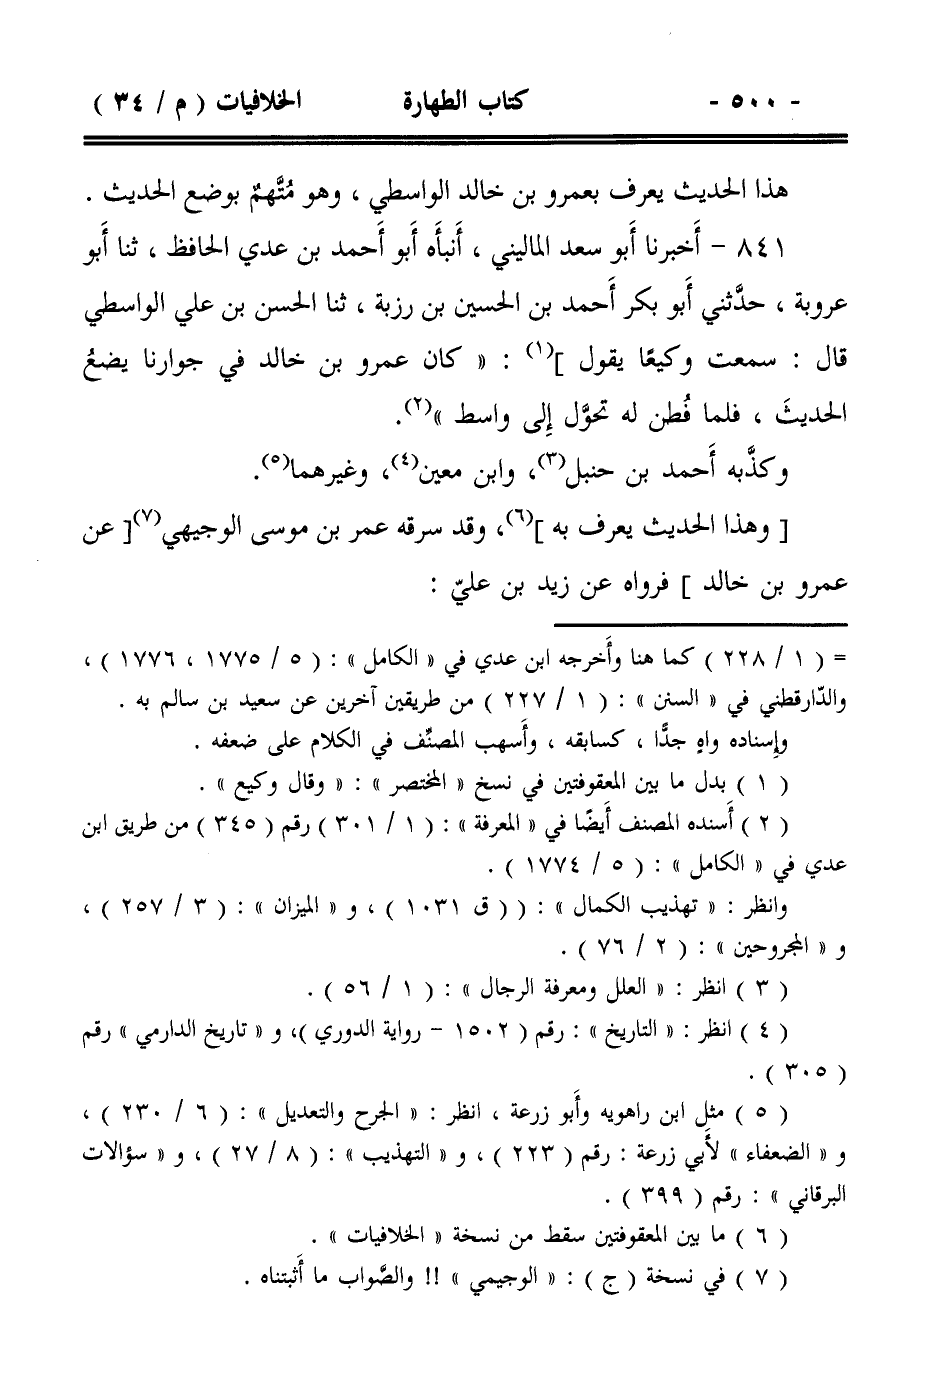 - ٥٠٠ - كتاب الطهارة الخلافيات ( م / ٣٤ )
هذا الحديث يعرف بعمرو بن خالد الواسطي ، وهو مُتَّهمٌ بوضع الحديث .
٨٤١ - أَخبرنا أَبو سعد الماليني ، أَنبأَه أَبو أَحمد بن عدي الحافظ ، ثنا أَبو
عروبة ، حدَّثني أَبو بكر أَحمد بن الحسين بن رزبة ، ثنا الحسن بن علي الواسطي
قال : سمعت وكيعًا يقول ](١) : « كان عمرو بن خالد في جوارنا يضعُ
الحديثَ ، فلما فُطن له تحوَّل إِلى واسط »(٢).
وكذَّبه أَحمد بن حنبل(٣)، وابن معين(٤)، وغيرهما(٥).
[ وهذا الحديث يعرف به ](٦)، وقد سرقه عمر بن موسى الوجيهي(٧)[ عن
عمرو بن خالد ] فرواه عن زيد بن عليّ :
= ( ١ / ٢٢٨ ) كما هنا وأَخرجه ابن عدي في « الكامل » : ( ٥ / ١٧٧٥ ، ١٧٧٦ ) ،
والدّارقطني في « السنن » : ( ١ / ٢٢٧ ) من طريقين آخرين عن سعيد بن سالم به .
وإِسناده واهٍ جدًّا ، كسابقه ، وأَسهب المصنِّف في الكلام على ضعفه .
( ١ ) بدل ما بين المعقوفتين في نسخ « المختصر » : « وقال وكيع » .
( ٢ ) أَسنده المصنف أَيضًا في « المعرفة » : ( ١ / ٣٠١ ) رقم ( ٣٤٥ ) من طريق ابن
عدي في « الكامل » : ( ٥ / ١٧٧٤ ) .
وانظر : « تهذيب الكمال » : ( ( ق ١٠٣١ ) ، و « الميزان » : ( ٣ / ٢٥٧ ) ،
و « المجروحين » : ( ٢ / ٧٦ ) .
( ٣ ) انظر : « العلل ومعرفة الرجال » : ( ١ / ٥٦ ) .
( ٤ ) انظر : « التاريخ » : رقم ( ١٥٠٢ - رواية الدوري )، و « تاريخ الدارمي » رقم
( ٣٠٥ ) .
( ٥ ) مثل ابن راهويه وأَبو زرعة ، انظر : « الجرح والتعديل » : ( ٦ / ٢٣٠ ) ،
و « الضعفاء » لأَبي زرعة : رقم ( ٢٢٣ ) ، و « التهذيب » : ( ٨ / ٢٧ ) ، و « سؤالات
البرقاني » : رقم ( ٣٩٩ ) .
( ٦ ) ما بين المعقوفتين سقط من نسخة « الخلافيات » .
( ٧ ) في نسخة ( ج ) : « الوجيمي » !! والصَّواب ما أَثبتناه .